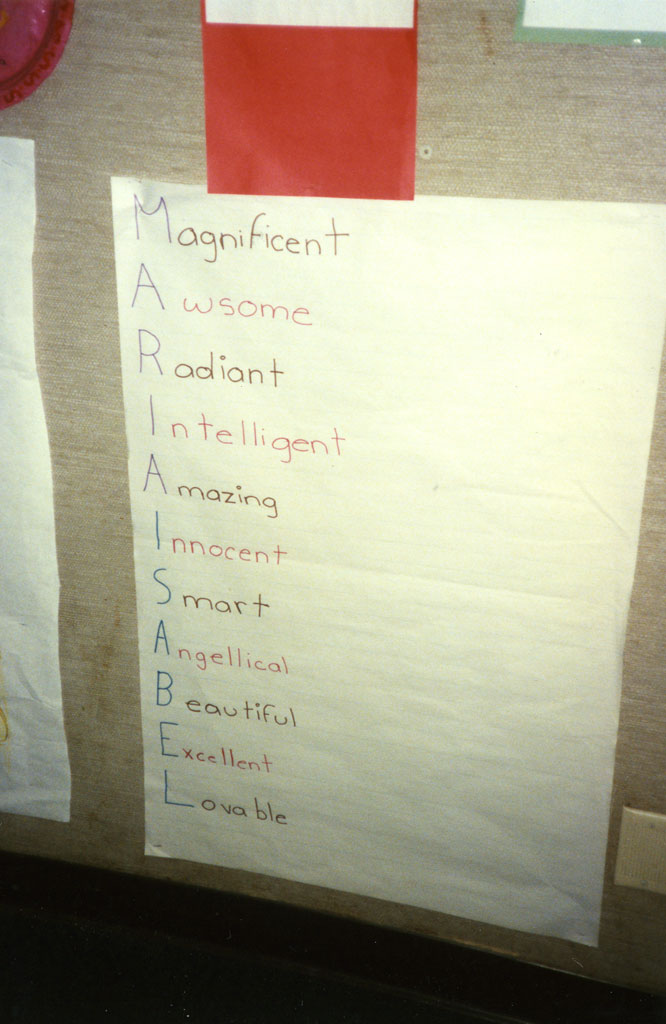 Magnificent
Awsome
Radiant
Intelligent
Amazing
Innocent
Smart
Angellical
Beautiful
Excellent
Lovable